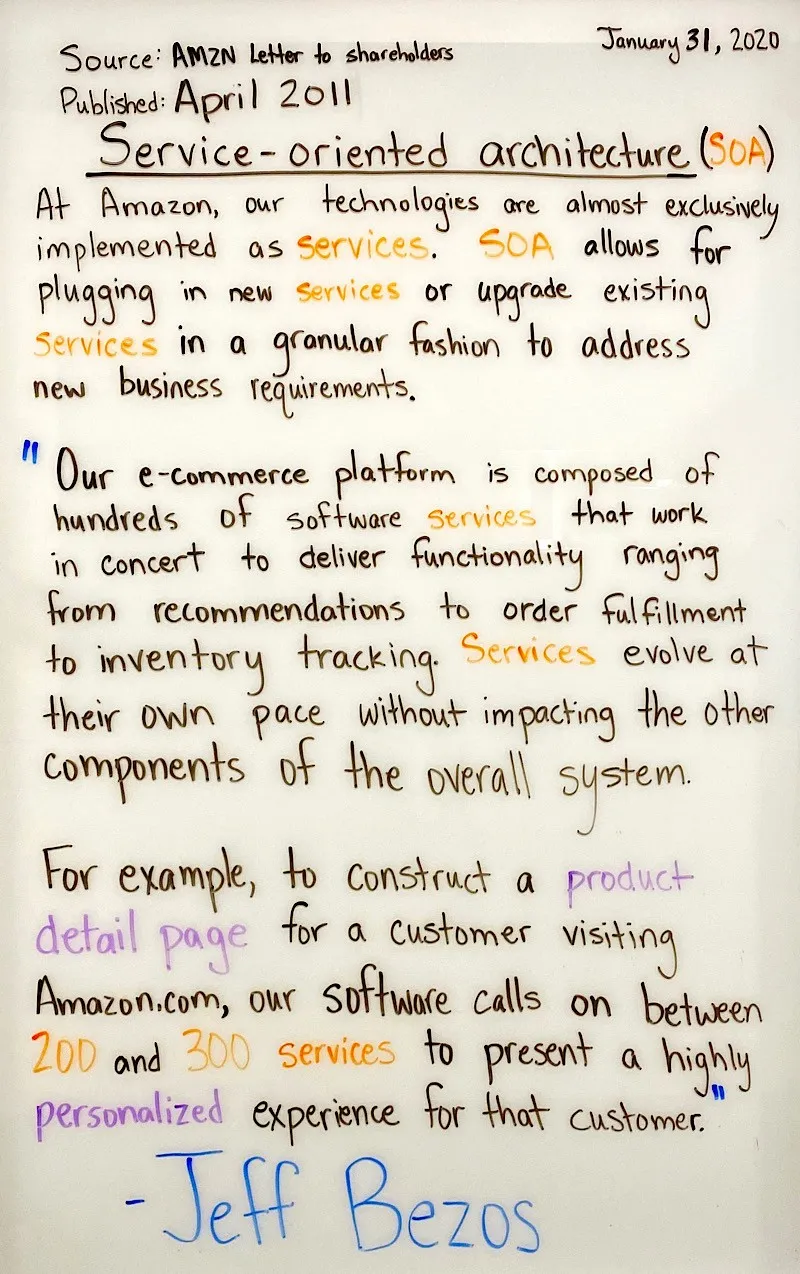 January 31, 2020
Source: AMZN Letter to shareholders
Published: April 2011
Service-oriented architecture (SOA)
At Amazon, our technologies are almost exclusively
implemented as services. SOA allows for
plugging in new services or upgrade existing
services in a granular fashion to address
new business requirements.
"Our e-commerce platform is composed of
hundreds of software services that work
in concert to deliver functionality ranging
from recommendations to order fulfillment
to inventory tracking. Services evolve at
their own pace without impacting the other
components of the overall system.
For example, to construct a product
detail page for a customer visiting
Amazon.com, our software calls on between
200 and 300 services to present a highly
personalized experience for that customer."
- Jeff Bezos